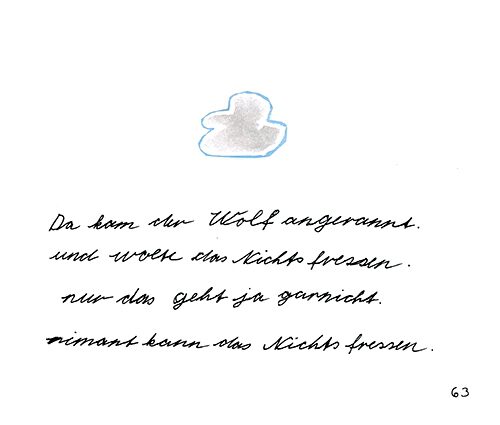 Da kam der Wolf angerannt.
und wolte das Nichts fressen.
nur das geht ja garnicht.
nimant kann das Nichts fressen.
63